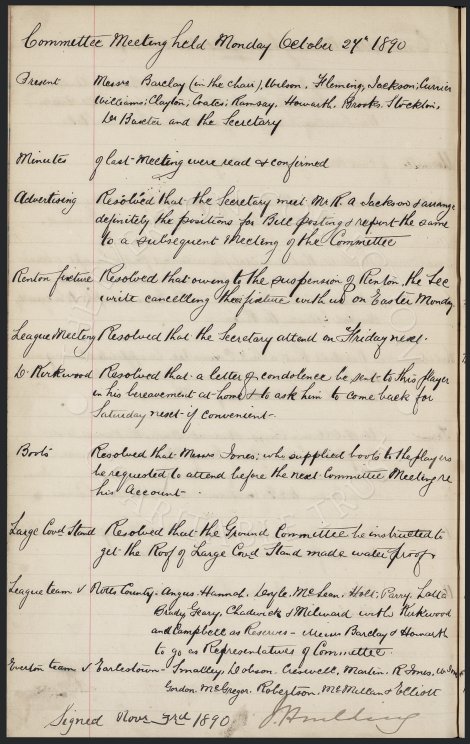 Committee Meeting held Monday October 27th 1890
Present Messrs Barclay (in the chair), Wilson, Fleming, Jackson; Currier
Williams; Clayton; Coates; Ramsay, Howarth, Brooks, Stockton,
Dr Baxter and the Secretary
Minutes of last Meeting were read & confirmed
Advertising Resolved that the Secretary meet Mr R. A Jackson & arrange
definitely the positions for Bill posting & report the same
to a subsequent Meeting of the Committee
Renton fixture Resolved that owing to the suspension of Renton, the Sec
write cancelling the fixture with us on Easter Monday
League Meeting Resolved that the Secretary attend on Friday next.
D. Kirkwood Resolved that a letter of condolence be sent to this player
in his bereavement at home & to ask him to come back for
Saturday next if convenient.
Boots Resolved that Messrs Jones; who supplied boots to the players
be requested to attend before the next Committee Meeting re
his Account.
Large Cov'd Stand Resolved that the Ground Committee be instructed to
get the Roof of Large Cov'd Stand made water proof.
League team v Notts County. Angus. Hannah. Doyle. McLean. Holt. Parry. Latta
Brady Geary. Chadwick & Milward with Kirkwood
and Campbell as Reserves - Messrs Barclay & Howarth
to go as Representatives of Committee
Everton team v Earlestown - Smalley, Dobson. Cresswell, Martin. R Jones. W
Gordon. McGregor. Robertson. McMillan & Elliott
Signed Novr 3rd 1890.